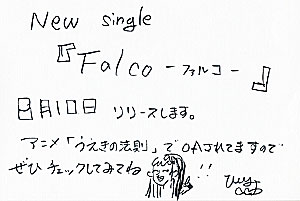 New single
『Falco -ファルコ-』
8月10日 リリースします。
アニメ「うえきの法則」でOAされてますので
ぜひチェックしてみてね!!